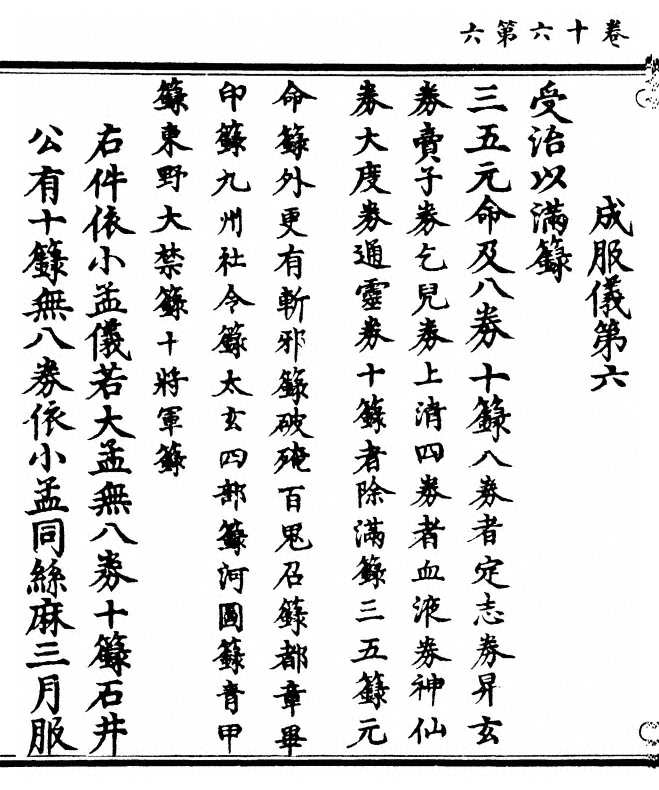 卷十六第六
成服儀第六
受治以滿籙
三五元命及八券十籙八券者定志券昇玄
券賣子券乞兒券上消四券者血液券神仙
券大度券通靈券十籙者除滿籙三五籙元
命籙外更有斬邪籙破殗百鬼召籙都章畢
印籙九州社令籙太玄四部籙河圖籙青甲
籙東野大禁籙十將軍籙
右件依小孟儀若大孟無八券十籙石井
公有十籙無八券依小孟同絲麻三月服